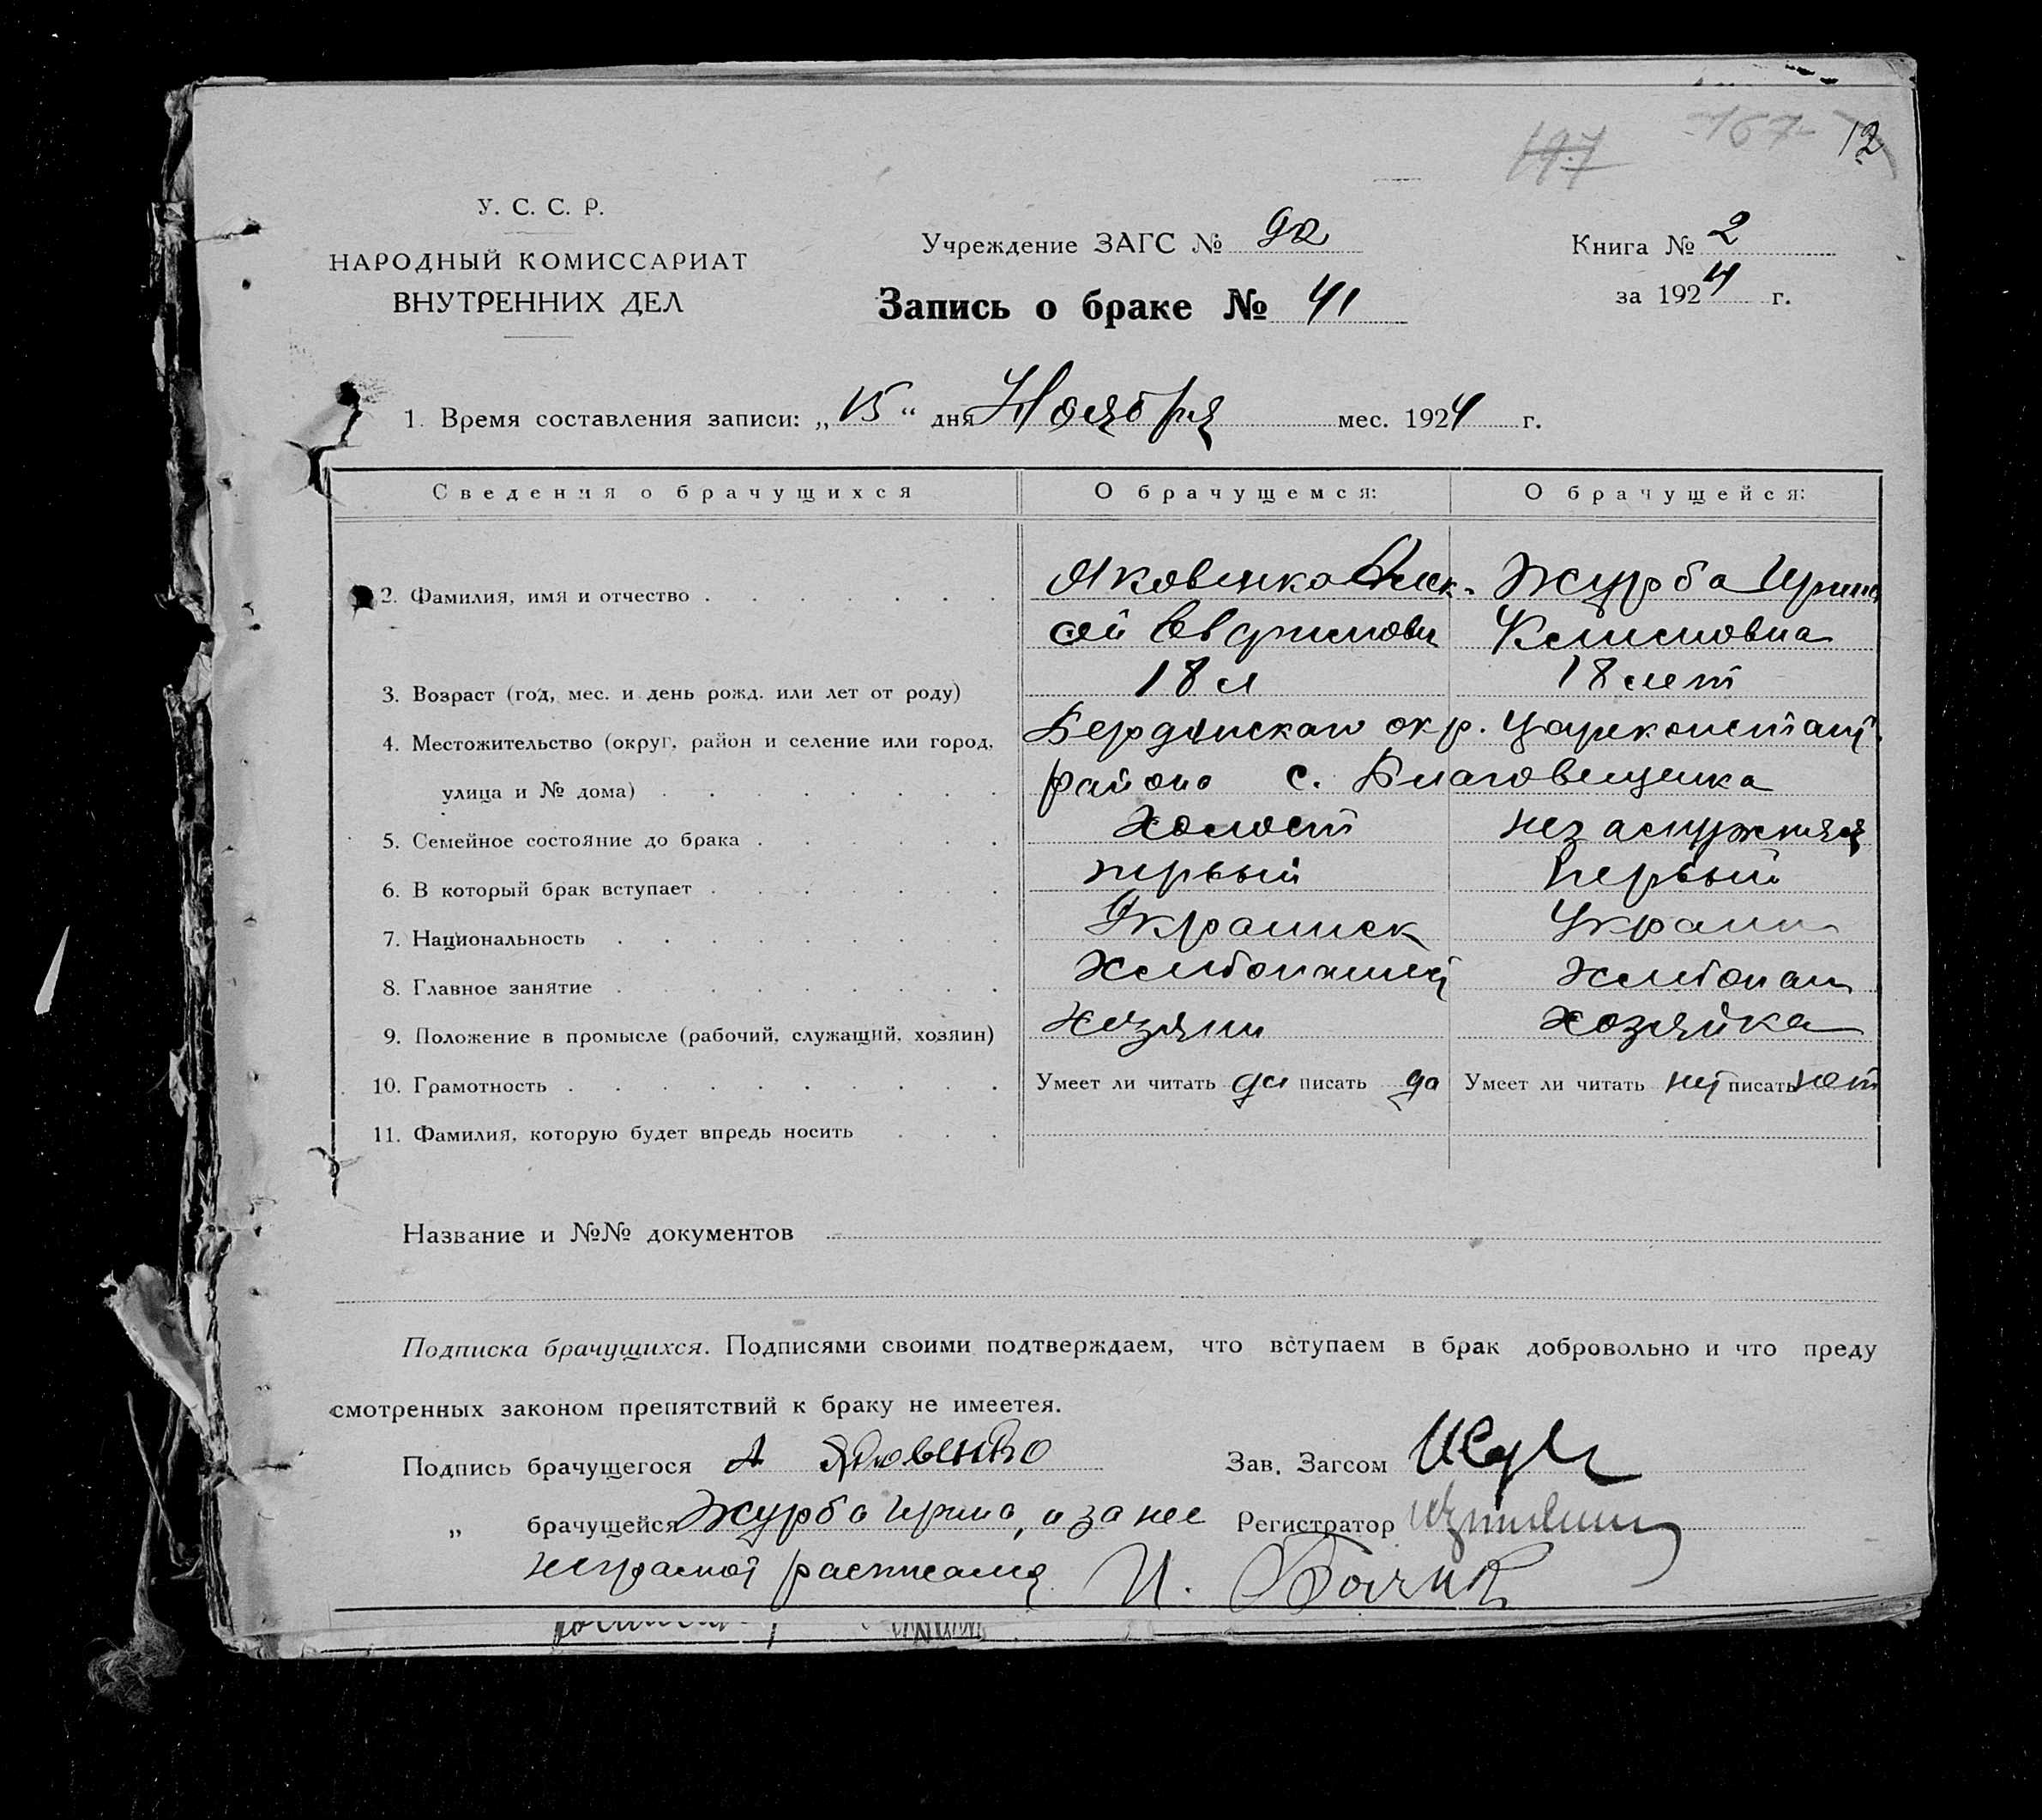 197 167 12
У. С. С. Р.
НАРОДНЫЙ КОМИССАРИАТ
ВНУТРЕННИХ ДЕЛ
Учреждение ЗАГС № 92
Запись о браке № 41
Книга № 2
за 1924 г.
1. Время составления записи: „15“ дня Ноября мес. 1924 г.
Сведения о брачущихся О брачущемся: О брачущейся:
2. Фамилия, имя и отчество Яковенко Алек- Журба Ирина
сей
3. Возраст (год, мес. и день рожд. или лет от роду) 18 л 18 лет
4. Местожительство (округ, район и селение или город, Бердянского окр. Цареконстант.
улица и № дома) района с. Благовещенка
5. Семейное состояние до брака Холост незамужняя
6. В который брак вступает первый первый
7. Национальность Украинск Украин
8. Главное занятие Хлебопашец Хлебопаш
9. Положение в промысле (рабочий, служащий, хозяин) Хозяин хозяйка
10. Грамотность Умеет ли читать да писать да Умеет ли читать нет писать нет
11. Фамилия, которую будет впредь носить
Название и №№ документов
Подписка брачущихся. Подписями своими подтверждаем, что вступаем в брак добровольно и что преду
смотренных законом препятствий к браку не имеетея.
Подпись брачущегося А Яковенко Зав. Загсом
„ брачущейся Журба Ирина, а за нее Регистратор
неграмот расписался И.